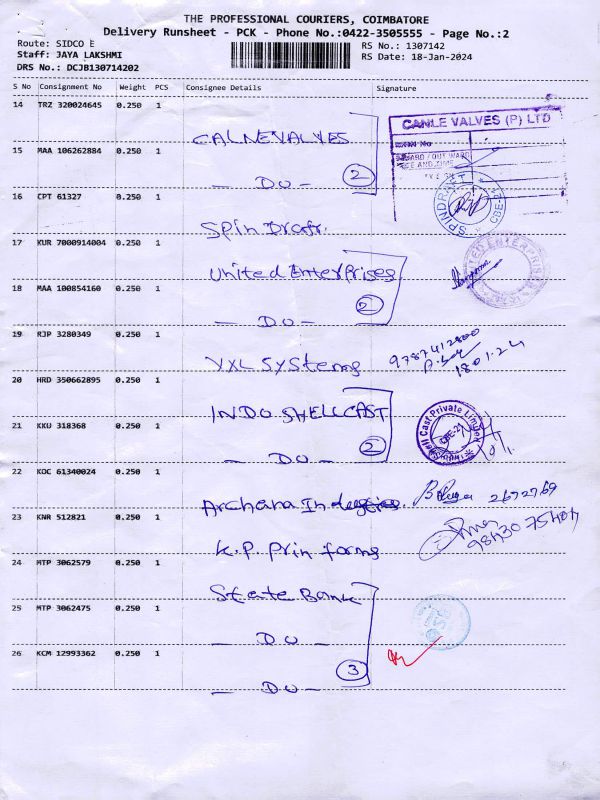 THE PROFESSIONAL COURIERS, COIMBATORE
Delivery Runsheet - PCK - Phone No.:0422-3505555 - Page No.:2
Route: SIDCO E
RS No.: 1307142
Staff: JAYA LAKSHMI
RS Date: 18-Jan-2024
DRS No.: DCJB130714202
S No Consignment No Weight PCS Consignee Details Signature
14 TRZ 320024645 0.250 1
CALNEVALVES
CANLE VALVES (P) LTD
15 MAA 106262884 0.250 1
- DO - 2
16 CPT 61327 0.250 1
Spin Draft.
SPINDRAFT CBE-21
17 KUR 7000914004 0.250 1
United Enterprises
18 MAA 100854160 0.250 1
- DO - 2
19 RJP 3280349 0.250 1
VXL Systems 9787412800
18.01.24
20 HRD 350662895 0.250 1
INDO SHELLCAST
21 KKU 318368 0.250 1
- DO - 2
Shell Cast Private Limited CBE-21
22 KOC 61340024 0.250 1
Archana Industries. 2672769
23 KNR 512821 0.250 1
K.P. Prin forms
24 MTP 3062579 0.250 1
State Bank
25 MTP 3062475 0.250 1
- DO -
26 KCM 12993362 0.250 1
- DO - 3